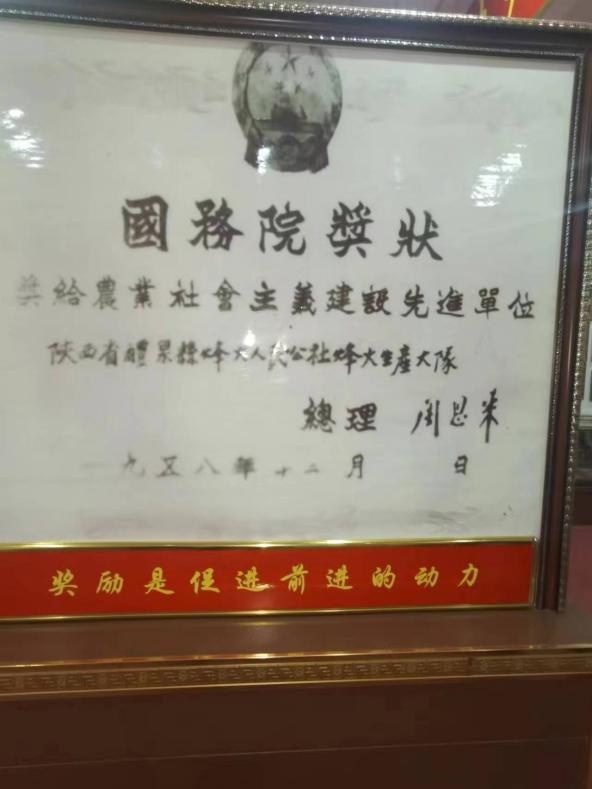 國務院獎狀
獎給農業社會主義建設先進單位
陕西省醴泉縣烽火人民公社烽火生產大隊
總理 周恩来
一九五八年十二月 日
奖励是促进前进的动力